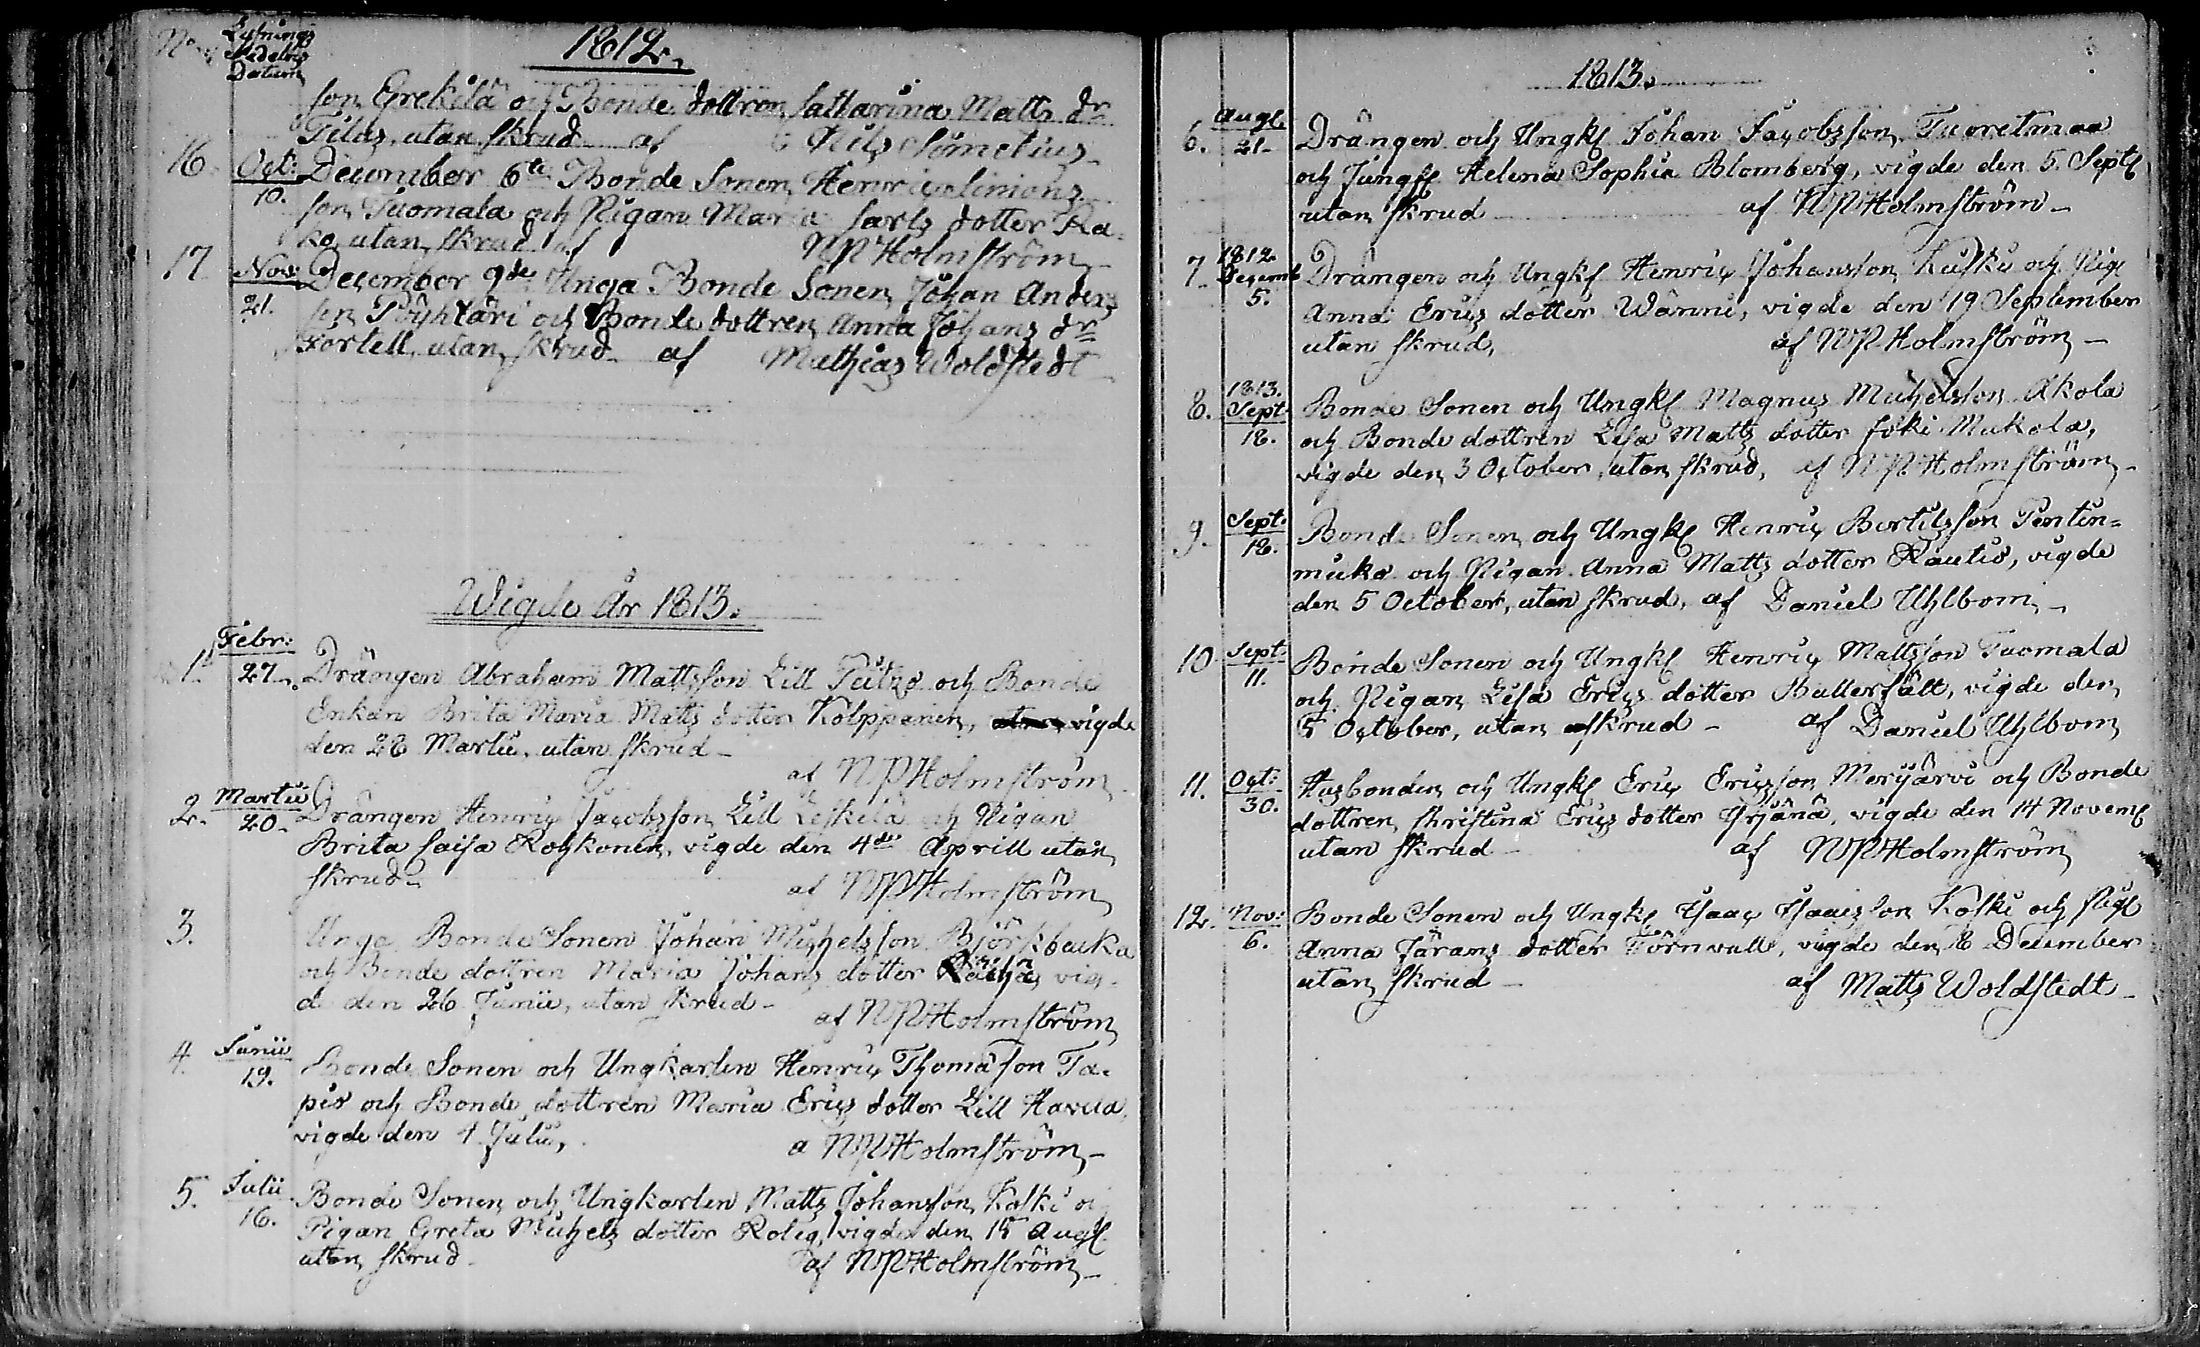 No
Lysnings
Sedelns
Datum
1812.
son Erekilä och Bonde dottren Catharina Matts dr
Filas, utan skrud af Nils
16. Oct: 10. December 6te Bonde Sonen Henric Simons
son Tuomala och Pigan Maria Carls dotter Ka-
ko, utan skrud af NPHolmström
17 Nov: 21. December 9de Unga Bonde Sonen Johan Anders
son Pöyhtäri och Bonde dottren Anna Johans dr
Fortell, utan skrud af Mathias Woldstedt
Wigde År 1813.
1. Febr: 27. Drängen Abraham Mattsson Lill och Bonde
Enkan Brita Maria Matts dotter Kolppanen, vigde
den 28 Martii, utan skrud
af NPHolmström
2. Martii 20. Drängen Henric Jacobsson Lill Leskelä och Pigan
Brita Caisa Roykonen, vigde den 4de Aprill utan
skrud
af NPHolmström
3. Unga Bonde Sonen Johan Michelsson Björkbacka
och Bonde dottren Maria Johans dotter vig-
de den 26 Junii, utan skrud
af NPHolmström
4. Junii 19. Bonde Sonen och Ungkarlen Henric Thomasson Ta-
pio och Bonde dottren Maria Erics dotter Lill Havela,
vigde den 4 Julii,
a NPHolmström
5. Julii 16. Bonde Sonen och Ungkarlen Matts Johansson Kalki och
Pigan Greta Michels dotter Rolig, vigde den 15 Aug.
utan skrud
af NPHolmström
1813.
6. Aug. 21. Drängen och Ungk. Johan Jacobsson Tuoretmaa
och Jungf. Helena Sophia Blomberg, vigde den 5. Sept.
utan skrud af NPHolmström
7. 1812 Decemb 5. Drängen och Ungk. Henric Johansson Kalki och Pig.
Anna Erics dotter Wänni, vigde den 19 September
utan skrud, af NPHolmström
8. 1813. Sept. 18. Bonde Sonen och Ungk. Magnus Michelsson Akola
och Bonde dottren Lisa Matts dotter Joki-Mukola,
vigde den 3 October, utan skrud, af NPHolmström
9. Sept. 18. Bonde Sonen och Ungk. Henric Bertilsson Pentin-
mäki och Pigan Anna Matts dotter Rautio, vigde
den 5 October, utan skrud, af Daniel Uhlbom
10 Sept: 11. Bonde Sonen och Ungk. Henric Mattsson Tuomala
och Pigan Lisa Erics dotter Bullerfält, vigde den
5 October, utan skrud af Daniel Uhlbom
11. Oct: 30. Husbonden och Ungk. Eric Ericsson Merijärvi och Bonde
dottren Christina Erics dotter Yrjänä, vigde den 14 Novem.
utan skrud af NPHolmström
12. Nov: 6. Bonde Sonen och Ungk. Isaac Isaacsson Kalki och Pig.
Anna Jörans dotter Törnwall, vigde den 8 December
utan skrud af Matts Woldstedt